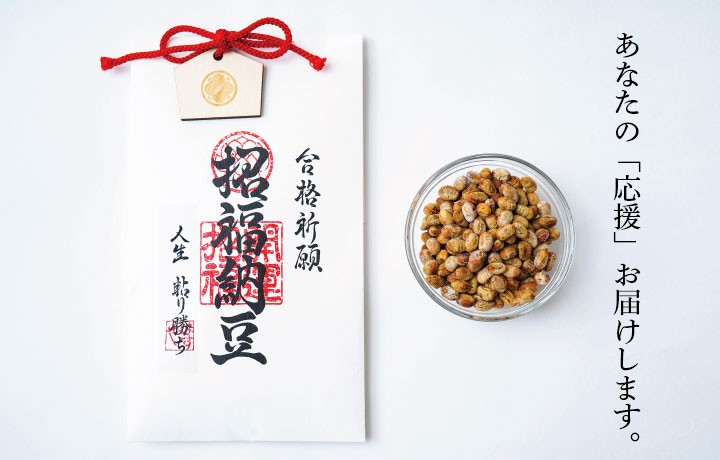 あなたの「応援」お届けします。
合格祈願
招福納豆
人生 粘り勝ち
開運
招福